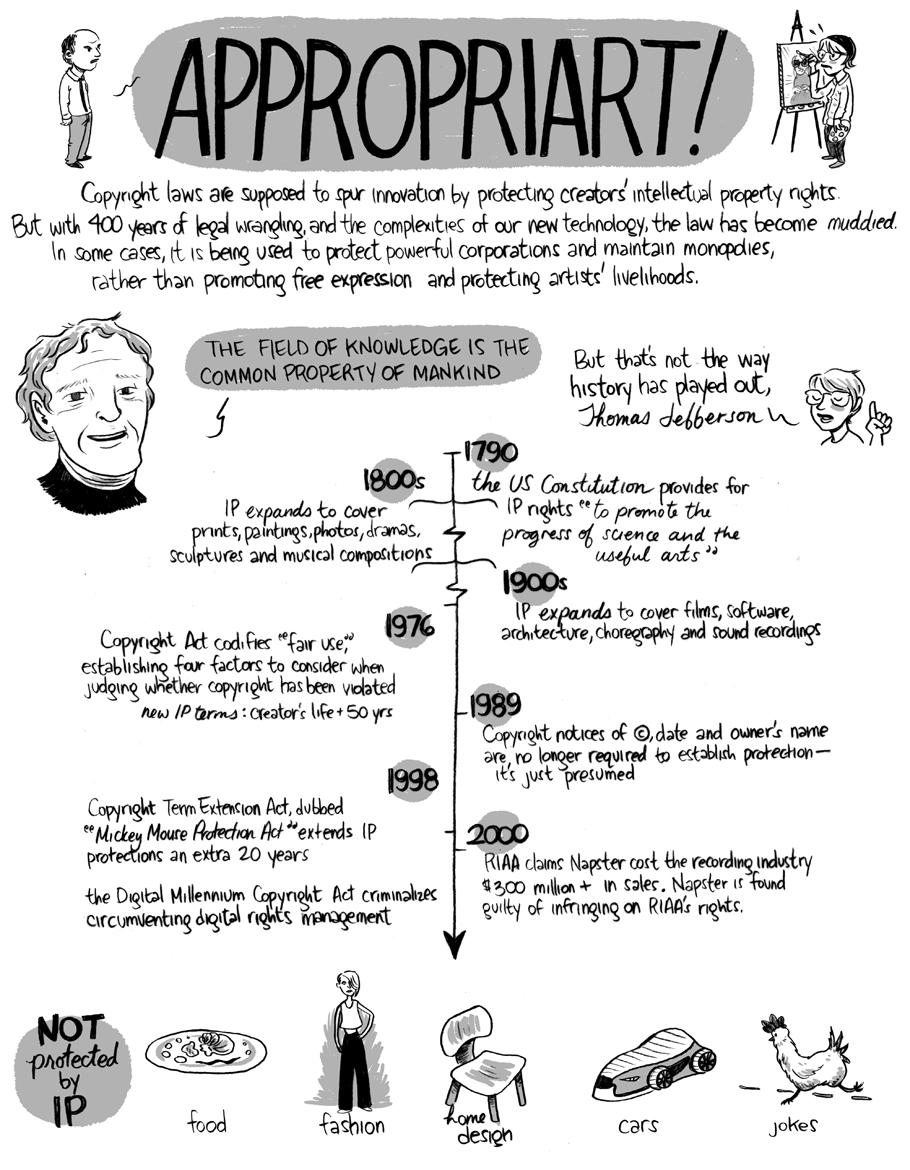 APPROPRIART!
Copyright laws are supposed to spur innovation by protecting creators' intellectual property rights.
But with 400 years of legal wrangling, and the complexities of our new technology, the law has become muddied.
In some cases, it is being used to protect powerful corporations and maintain monopolies,
rather than promoting free expression and protecting artists' livelihoods.
THE FIELD OF KNOWLEDGE IS THE
COMMON PROPERTY OF MANKIND
But that's not the way
history has played out,
Thomas Jefferson
1790
the US Constitution provides for
IP rights "to promote the
progress of science and the
useful arts"
1800s
IP expands to cover
prints, paintings, photos, dramas,
sculptures and musical compositions
1900s
IP expands to cover films, software,
architecture, choregraphy and sound recordings
1976
Copyright Act codifies "fair use,"
establishing four factors to consider when
judging whether copyright has been violated
new IP terms: creator's life + 50 yrs
1989
Copyright notices of ©, date and owner's name
are no longer required to establish protection—
it's just presumed
1998
Copyright Term Extension Act, dubbed
"Mickey Mouse Protection Act" extends IP
protections an extra 20 years
the Digital Millennium Copyright Act criminalizes
circumventing digital rights management
2000
RIAA claims Napster cost the recording industry
$300 million + in sales. Napster is found
guilty of infringing on RIAA's rights.
NOT
protected
by
IP
food
fashion
home
design
cars
jokes